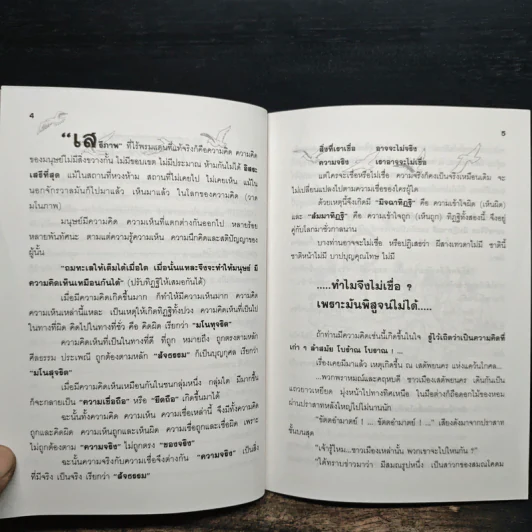 4
"เสรีภาพ" ที่ไร้พรมแดนที่แท้จริงก็คือความคิด ความคิด
ของมนุษย์ไม่มีสิ่งขวางกั้น ไม่มีขอบเขต ไม่มีประมาณ ห้ามกันไม่ได้ อิสระ
เสรีที่สุด แม้ในสถานที่หวงห้าม สถานที่ไม่เคยไป ไม่เคยเห็น แม้ใน
นอกจักรวาลมันก็ไปมาแล้ว เห็นมาแล้ว ในโลกของความคิด (วาด
มโนภาพ)
มนุษย์มีความคิด ความเห็นที่แตกต่างกันออกไป หลายร้อย
หลายพันทัศนะ ตามแต่ความรู้ความเห็น ความนึกคิดและสติปัญญาของ
ผู้นั้น
"ถมทะเลให้เต็มได้เมื่อใด เมื่อนั้นแหละจึงจะทำให้มนุษย์ มี
ความคิดเห็นเหมือนกันได้" (ปรับทิฏฐิให้เสมอกันได้)
เมื่อมีความคิดเกิดขึ้นมาก ก็ทำให้มีความเห็นมาก ความคิด
ความเห็นเหล่านี้แหละ เป็นเหตุให้เกิดทิฏฐิทั้งปวง ความคิดความเห็นที่เป็นไป
ในทางที่ผิด คิดไปในทางที่ชั่ว คือ คิดผิด เรียกว่า "มโนทุจริต"
ความคิดความเห็นที่เป็นในทางที่ดี ที่ถูก หมายถึง ถูกตรงตามหลัก
ศีลธรรม ประเพณี ถูกต้องตามหลัก "สัจธรรม" ก็เป็นบุญกุศล เรียกว่า
"มโนสุจริต"
เมื่อมีความคิดความเห็นเหมือนกันในชนกลุ่มหนึ่ง กลุ่มใด มีมากขึ้น
ก็จะกลายเป็น "ความเชื่อถือ" หรือ "ยึดถือ" เกิดขึ้นมาได้
ฉะนั้นทั้งความคิด ความเห็น ความเชื่อ เหล่านี้ จึงมีทั้งความคิด
ถูกและคิดผิด ความเห็นถูกและเห็นผิด ความเชื่อถูกและเชื่อผิด เพราะ
ไม่ถูกต้องตาม "ความจริง" ไม่ถูกตรง "ของจริง"
ฉะนั้นความจริงกับความเชื่อจึงต่างกัน "ความจริง" เป็นสิ่ง
ที่มีจริง เป็นจริง เรียกว่า "สัจธรรม"
5
สิ่งที่เขาเชื่อ อาจจะไม่จริง
ความจริง เขาอาจจะไม่เชื่อ
แต่ใครจะเชื่อหรือไม่เชื่อ ความจริงก็คงเป็นจริงเหมือนเดิม จะ
ไม่เปลี่ยนแปลงไปตามความเชื่อของใครผู้ใด
ด้วยเหตุนี้จึงมี "มิจฉาทิฏฐิ" คือ ความเข้าใจผิด (เห็นผิด)
และ "สัมมาทิฏฐิ" คือ ความเข้าใจถูก (เห็นถูก) ทิฏฐิทั้งสองนี้ จึงอยู่
คู่กับโลกมาชั่วกาลนาน
บางท่านอาจจะไม่เชื่อ หรือปฏิเสธว่า ผีสางเทวดาไม่มี ชาตินี้
ชาติหน้าไม่มี บาปบุญคุณโทษ ไม่มี
.....ทำไมจึงไม่เชื่อ ?
เพราะมันพิสูจน์ไม่ได้.....
ถ้าท่านมีความคิดเช่นนี้เกิดขึ้นในใจ รู้ไว้เถิดว่าเป็นความคิดที่
เก่า ๆ ล้าสมัย โบร๊าณ โบราณ ! ...
เรื่องเคยมีมาแล้ว เหตุเกิดขึ้น ณ เสตัพยนคร แห่งแคว้นโกศล...
...พวกพราหมณ์และคฤหบดี ชาวเมืองเสตัพยนคร เดินกันเป็น
แถวยาวเหยียด มุ่งหน้าไปทางทิศเหนือ ในมือต่างก็ถือดอกไม้ของหอม
ผ่านปราสาทหลังใหญ่ไปไม่นานนัก
"ขัตตอำมาตย์ ! ... ขัตตอำมาตย์ ! ..." เสียงดังมาจากปราสาท
ชั้นบนสุด
"เจ้ารู้ไหม...ชาวเมืองเหล่านั้น พวกเขาจะไปไหนกัน ?"
"ได้ทราบข่าวมาว่า มีสมณรูปหนึ่ง เป็นสาวกของสมณโคดม